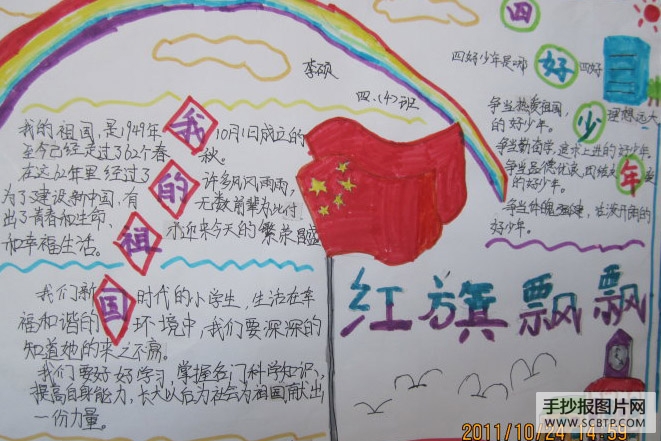 李硕
四、(4)班
我的祖国
我的祖国,是1949年10月1日成立的
至今已经走过了62个春秋。
在这62年里经过了许多风风雨雨,
为了建设新中国,有无数前辈为此付
出了青春和生命,永远来今天的繁荣昌盛
和幸福生活。
我们新时代的小学生,生活在幸
福和谐的环境中,我们要深深的
知道她的来之不易。
我们要好好学习,掌握各门科学知识、
提高自身能力,长大以后为社会为祖国献出
一份力量。
四好少年
四好少年是哪四好
争当热爱祖国,理想远大
的好少年。
争当勤奋学,追求上进的好少年。
争当品德优良,团结友爱
的好少年。
争当体魄强健,活泼开朗的
好少年。
红旗飘飘
2011/10/24 14:59
手抄报图片网
WWW.SCBTP.COM